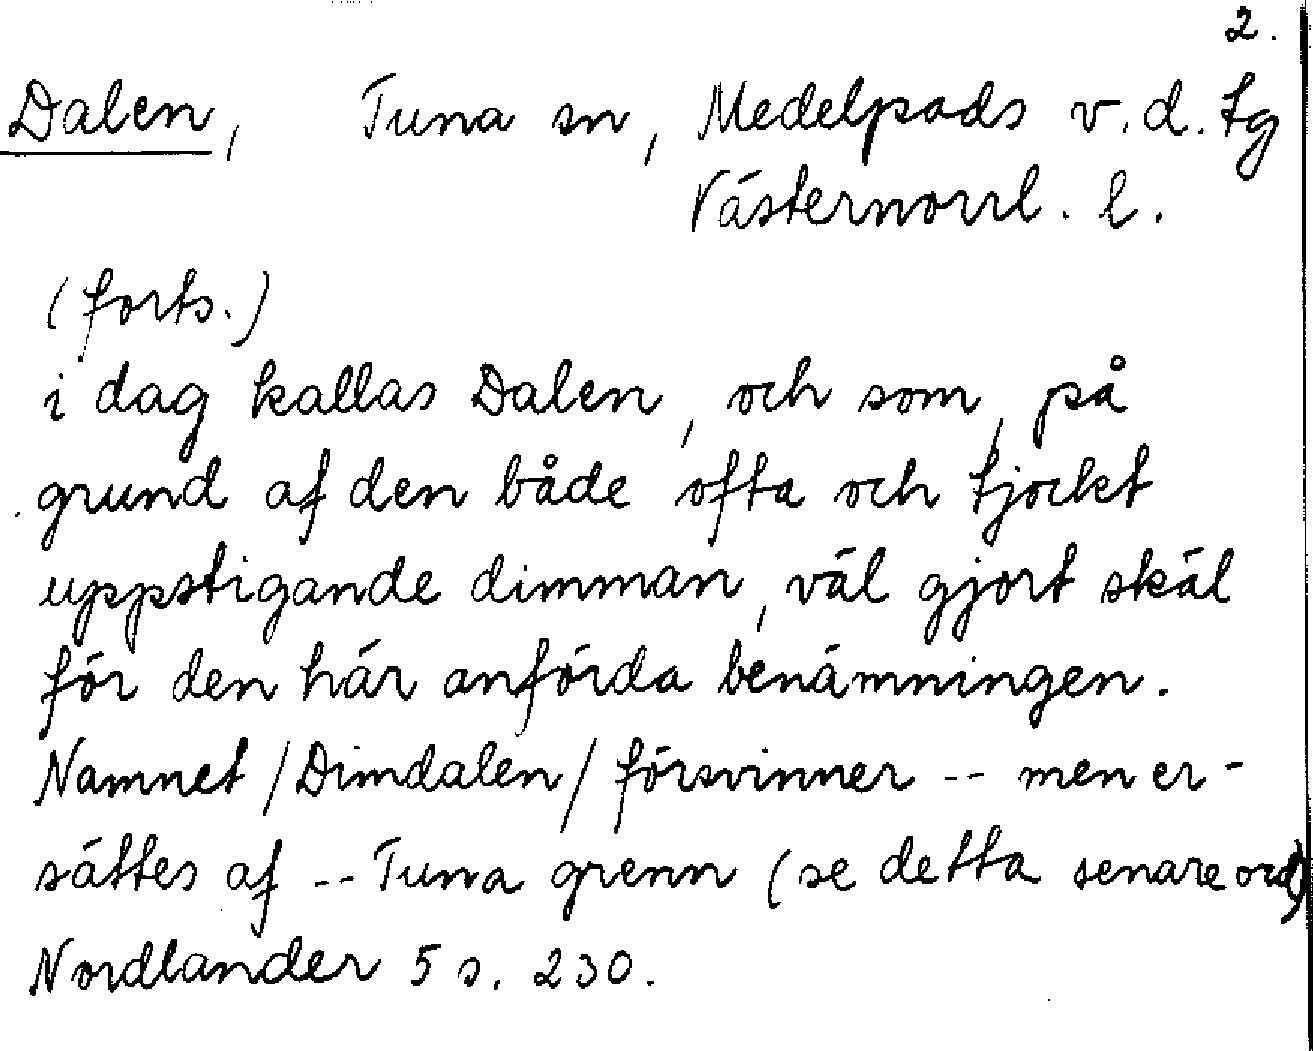 2.
Dalen, Tuna sn, Medelpads v. d. tg
Västernorrl. l.
(forts.)
i dag kallas Dalen, och som, på
grund af den både ofta och tjockt
uppstigande dimman, väl gjort skäl
för den här anförda benämningen.
Namnet /Dimdalen/ försvinner -- men er-
sättes af -- Tuna grenn (se detta senare ord)
Nordlander 5 s. 230.